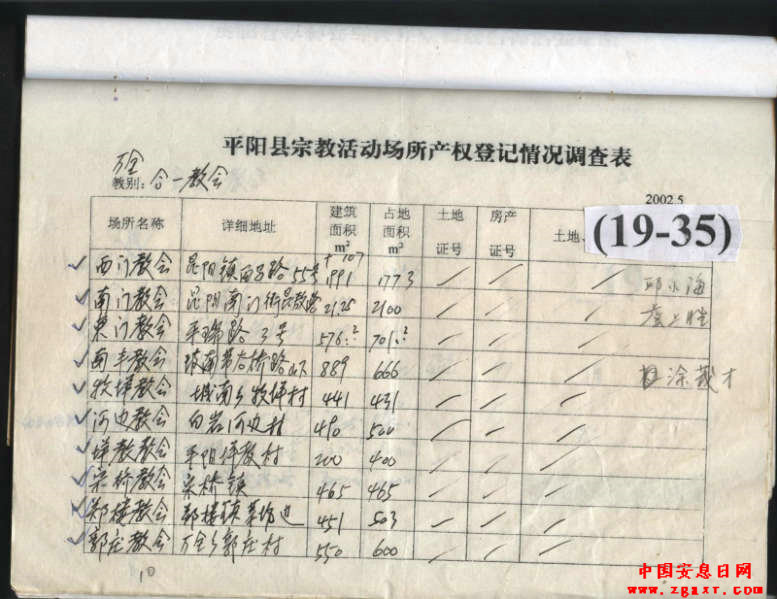 平阳县宗教活动场所产权登记情况调查表
万全
教别: 合一教会
2002.5
场所名称 详细地址 建筑面积m² 占地面积m² 土地证号 房产证号 土地、
(19-35)
+107
西门教会 昆阳镇西子路55号 1991 1773
南门教会 昆阳南门街 2125 2100
东门教会 平瑞路3号 576.2 701.2
南丰教会 889 666 涂茂才
牧垟教会 城南乡牧垟村 441 431
河边教会 白岩河边村 490 500
垟敖教会 平阳垟敖村 200 400
宋桥教会 宋桥镇 465 465
郑楼教会 郑楼镇菜场边 451 503
郭庄教会 万全乡郭庄村 550 600
10
中国安息日网
www.zgaxr.com